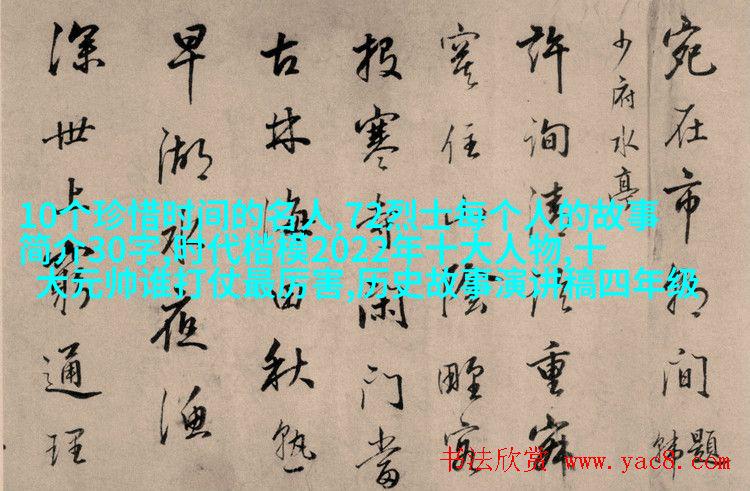 10个珍惜时间的名人,72烈士每个人的故事
简介30字,时代楷模2022年十大人物,十
大元帅谁打仗最厉害,历史故事演讲稿四年级
宛在市朝间 题韩
少府水亭
許詢清論重寂
寞住山陰野客
投寒寺閑門當
古林海田秋熟
早湖水夜漁
深世上窮通理
书法欣赏 www.yac8.com